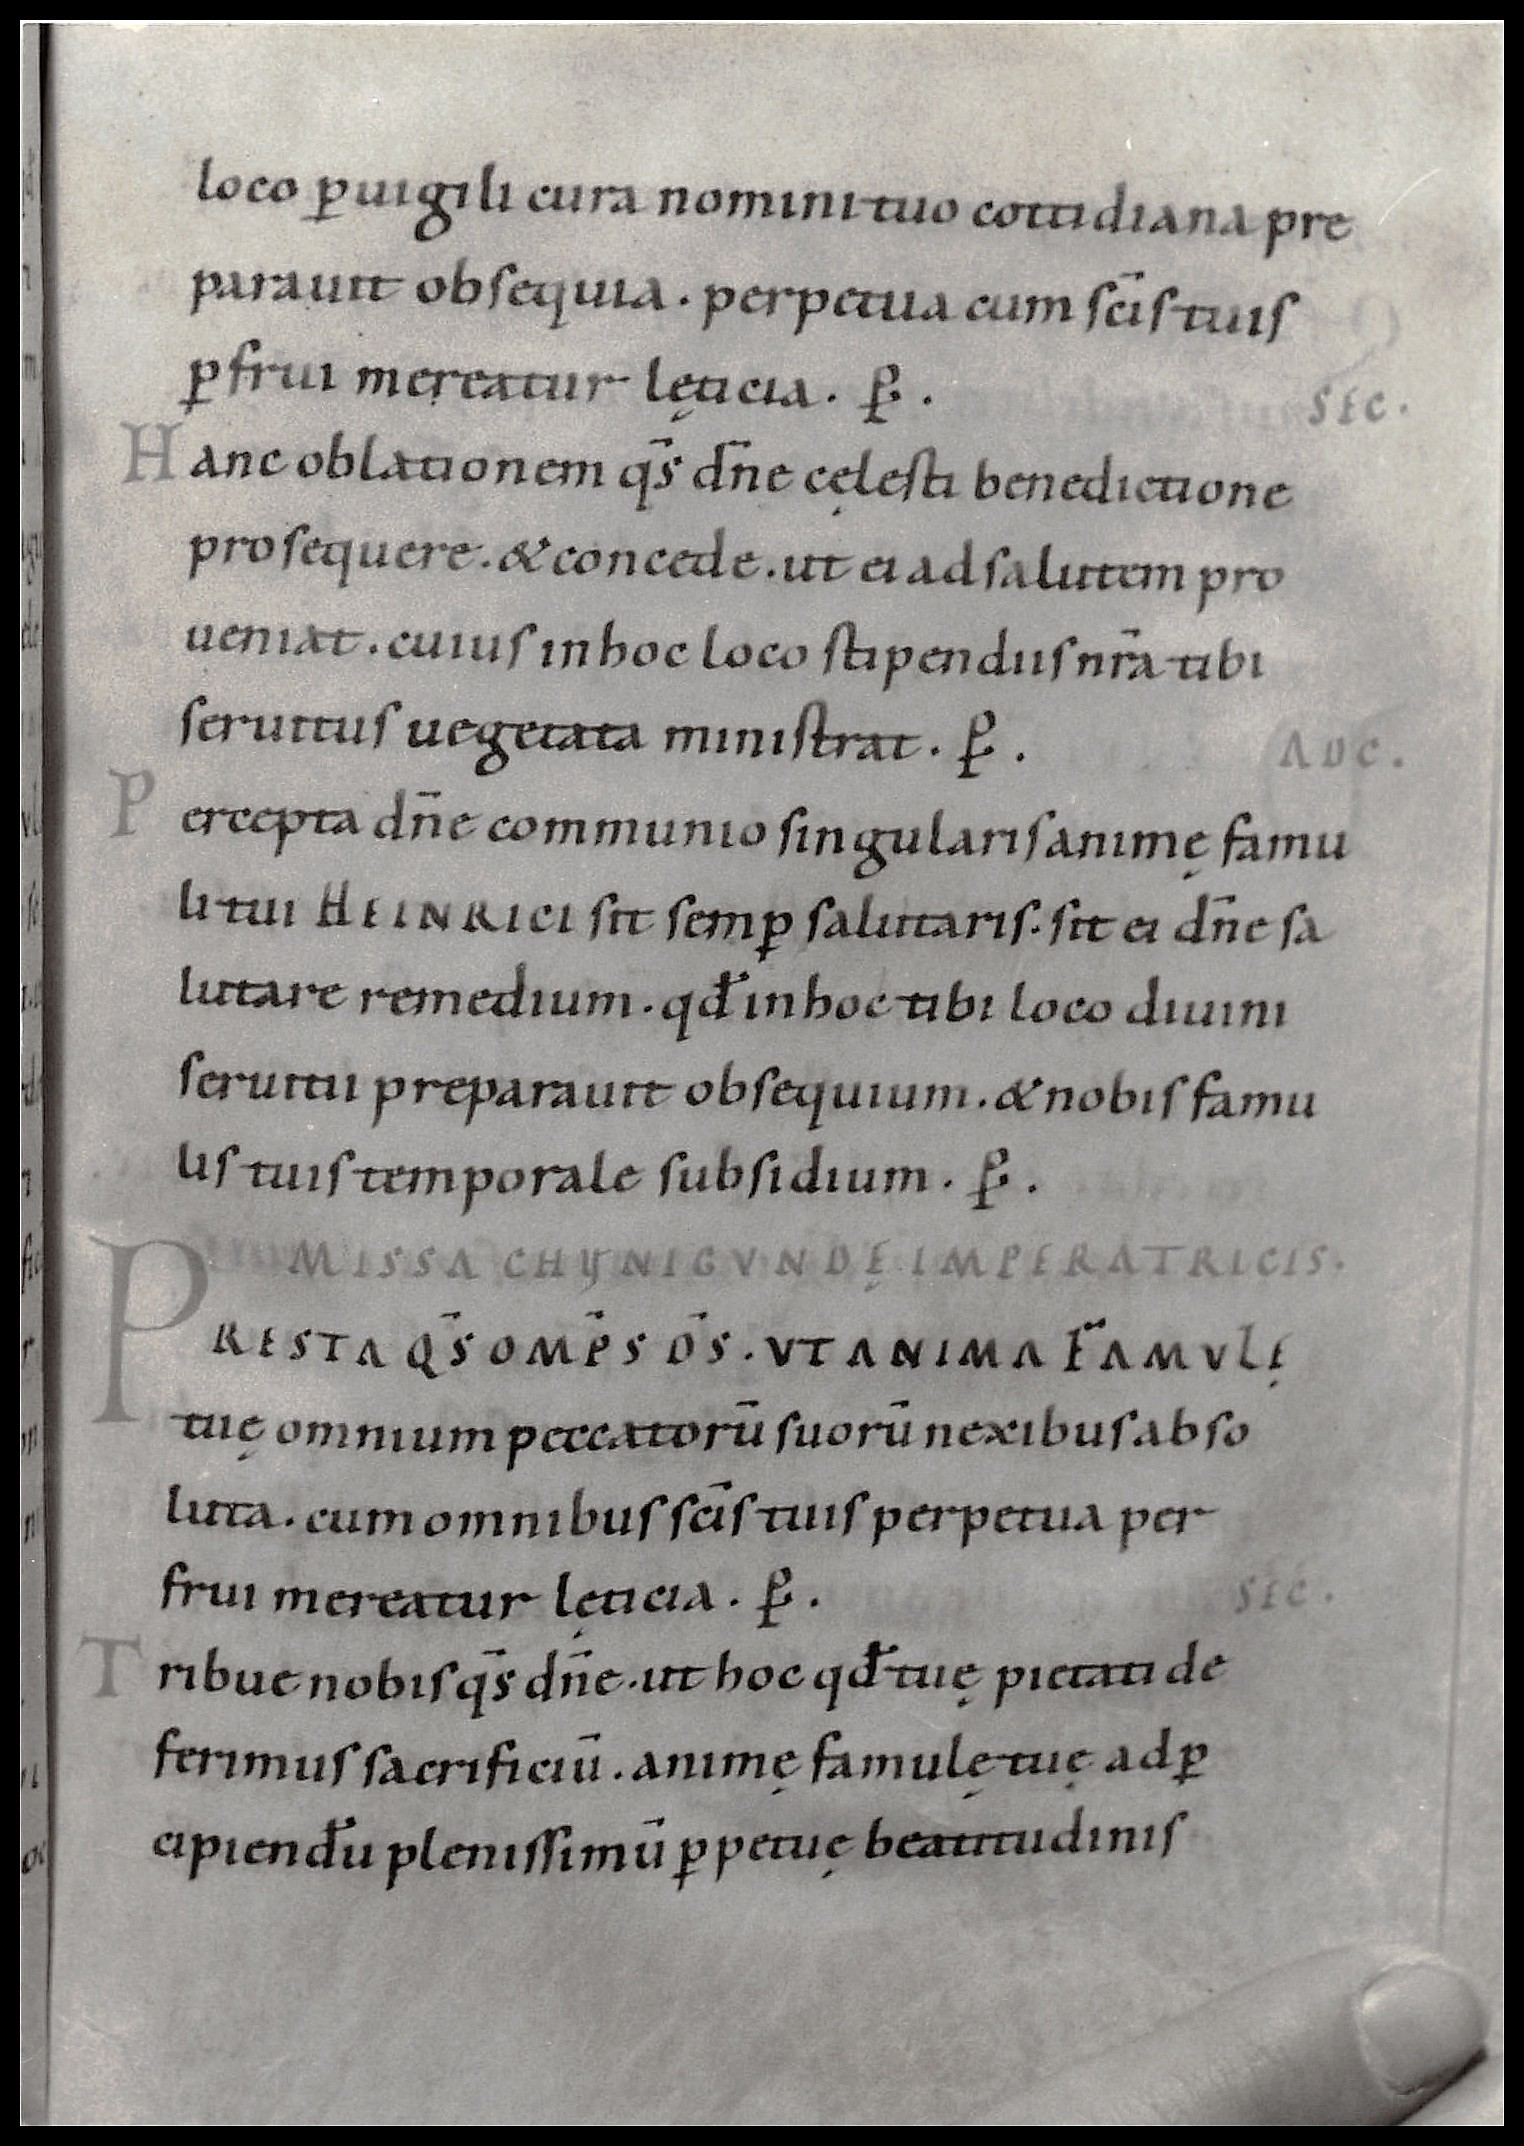 loco ꝑuigili cura nomini tuo cottidiana pre
parauit obsequia. perpetua cum sc̄is tuis
ꝑfrui mereatur lęticia. ꝑ.
SEC.
Hanc oblationem qs̄ dn̄e cęlesti benedictione
prosequere. & concede. ut ei ad salutem pro
ueniat. cuius in hoc loco stipendiis nr̄a tibi
seruitus uegetata ministrat. ꝑ.
ADC.
Percepta dn̄e communio singularis animę famu
li tui HEINRICI sit semꝑ salutaris. sit ei dn̄e sa
lutare remedium. qđ in hoc tibi loco diuini
seruitii preparauit obsequium. & nobis famu
lis tuis temporale subsidium. ꝑ.
MISSA CHUNIGVNDĘ IMPERATRICIS.
PRESTA QS̄ OMP̄S DS̄. VT ANIMA FAMVLĘ
tuę omnium peccatorū suorū nexibus abso
luta. cum omnibus sc̄is tuis perpetua per
frui mereatur lęticia. ꝑ.
SEC.
Tribue nobis qs̄ dn̄e. ut hoc qđ tuę pietati de
ferimus sacrificiū. animę famulę tuę ad ꝑ
cipiendu plenissimū ꝑpetuę beatitudinis